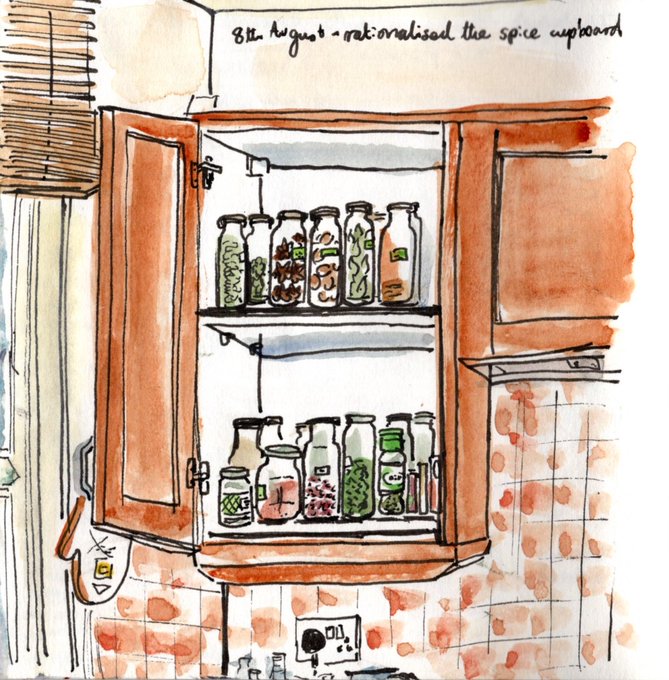 8th August - rationalised the spice cupboard